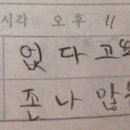 시각 오후 11
없다고또
존나 많